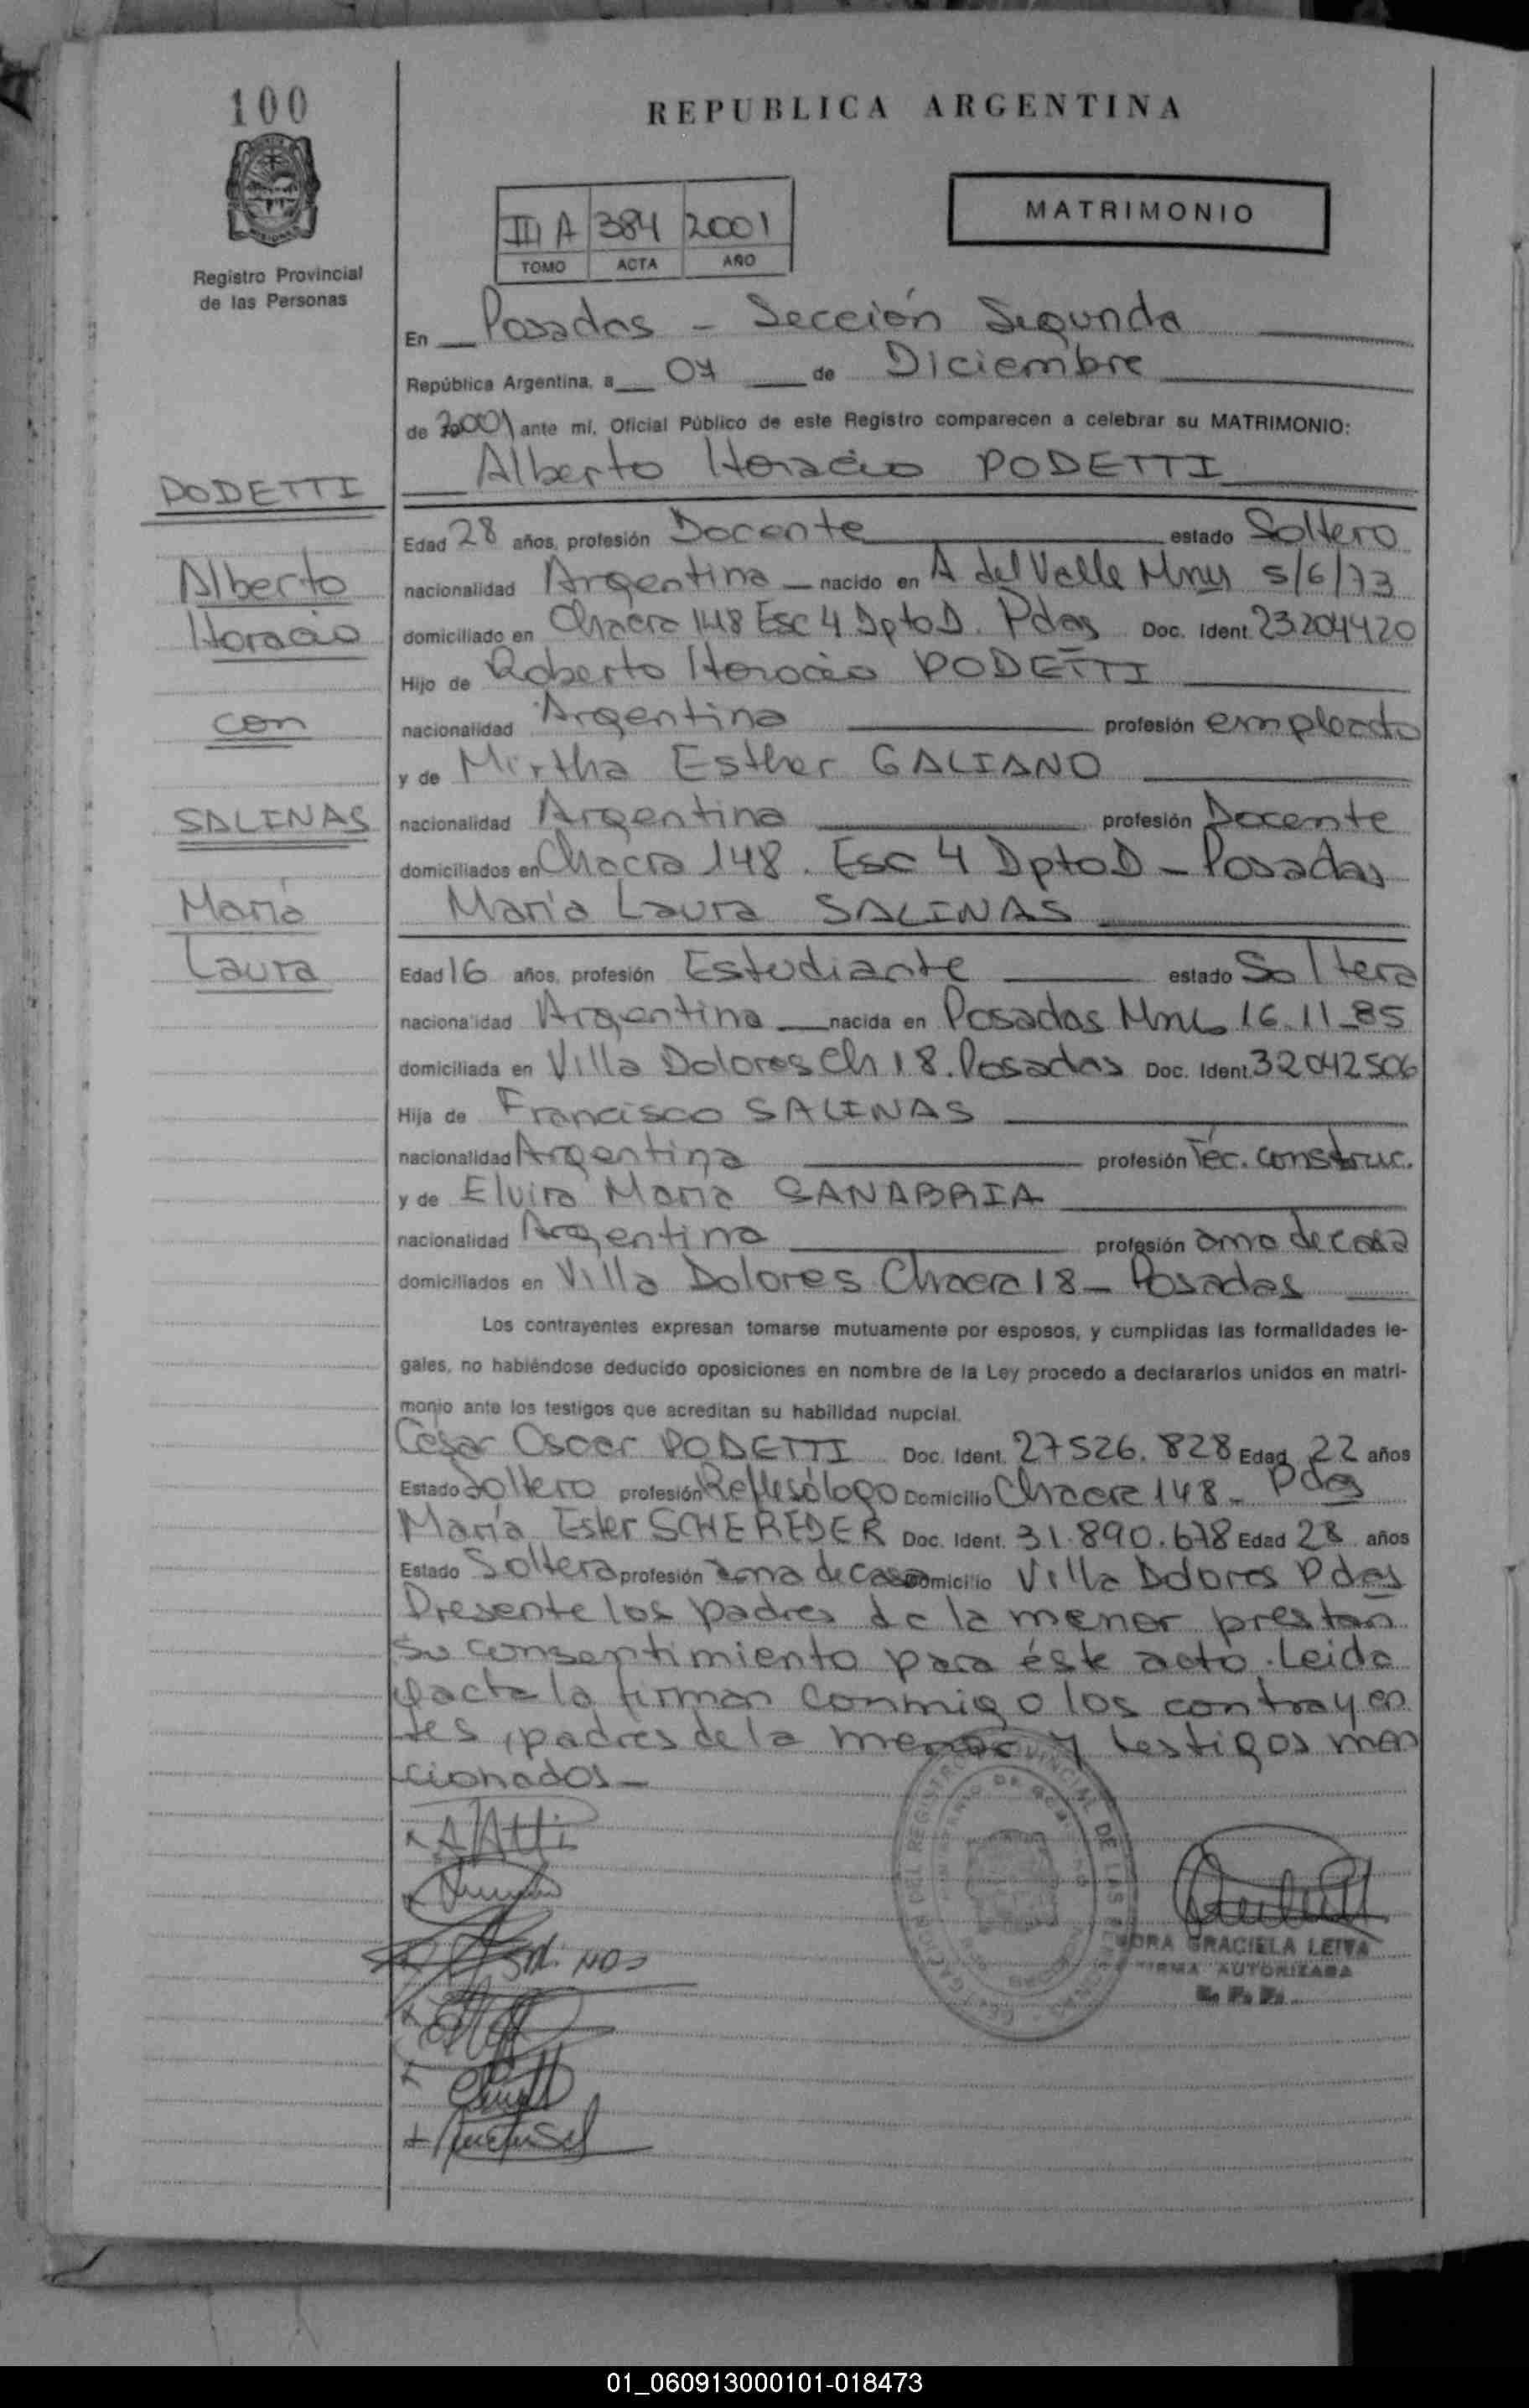 100
REPUBLICA ARGENTINA
MATRIMONIO
III A 384 2001
TOMO ACTA AÑO
Registro Provincial
de las Personas
En Posadas - Sección Segunda
República Argentina, a 07 de Diciembre
de 2001 ante mí, Oficial Público de este Registro comparecen a celebrar su MATRIMONIO:
Alberto Horacio PODETTI
PODETTI
Alberto
Horacio
con
SALINAS
María
Laura
Edad 28 años, profesión Docente estado Soltero
nacionalidad Argentina nacido en A del Valle Mnes 5/6/73
domiciliado en Chacra 148 Esc 4 Dpto D. Pdas Doc. Ident. 23204420
Hijo de Roberto Horacio PODETTI
nacionalidad Argentina profesión empleado
y de Mirtha Esther GALIANO
nacionalidad Argentina profesión Docente
domiciliados en Chacra 148. Esc 4 Dpto D - Posadas
María Laura SALINAS
Edad 16 años, profesión Estudiante estado Soltera
nacionalidad Argentina nacida en Posadas Mnes 16-11-85
domiciliada en Villa Dolores Ch 18. Posadas Doc. Ident. 32042506
Hija de Francisco SALINAS
nacionalidad Argentina profesión Téc. construc.
y de Elvira María SANABRIA
nacionalidad Argentina profesión ama de casa
domiciliados en Villa Dolores Chacra 18 - Posadas
Los contrayentes expresan tomarse mutuamente por esposos, y cumplidas las formalidades le-
gales, no habiéndose deducido oposiciones en nombre de la Ley procedo a declararlos unidos en matri-
monio ante los testigos que acreditan su habilidad nupcial.
César Oscar PODETTI Doc. Ident. 27526.828 Edad 22 años
Estado Soltero profesión Reflesólogo Domicilio Chacra 148 - Pdas
María Ester SCHEREDER Doc. Ident. 31.890.678 Edad 28 años
Estado Soltera profesión ama de casa Domicilio Villa Dolores Pdas
Presente los padres de la menor prestan
su consentimiento para éste acto. Leida
el acta la firman conmigo los contrayen
tes, padres de la menor y testigos men
cionados -
GRACIELA LEIVA
FIRMA AUTORIZADA
01_060913000101-018473